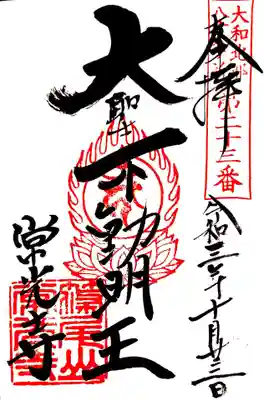 大和北部
第二十三番
奉拝
令和三年十月廿三日
大聖不動明王
常光寺